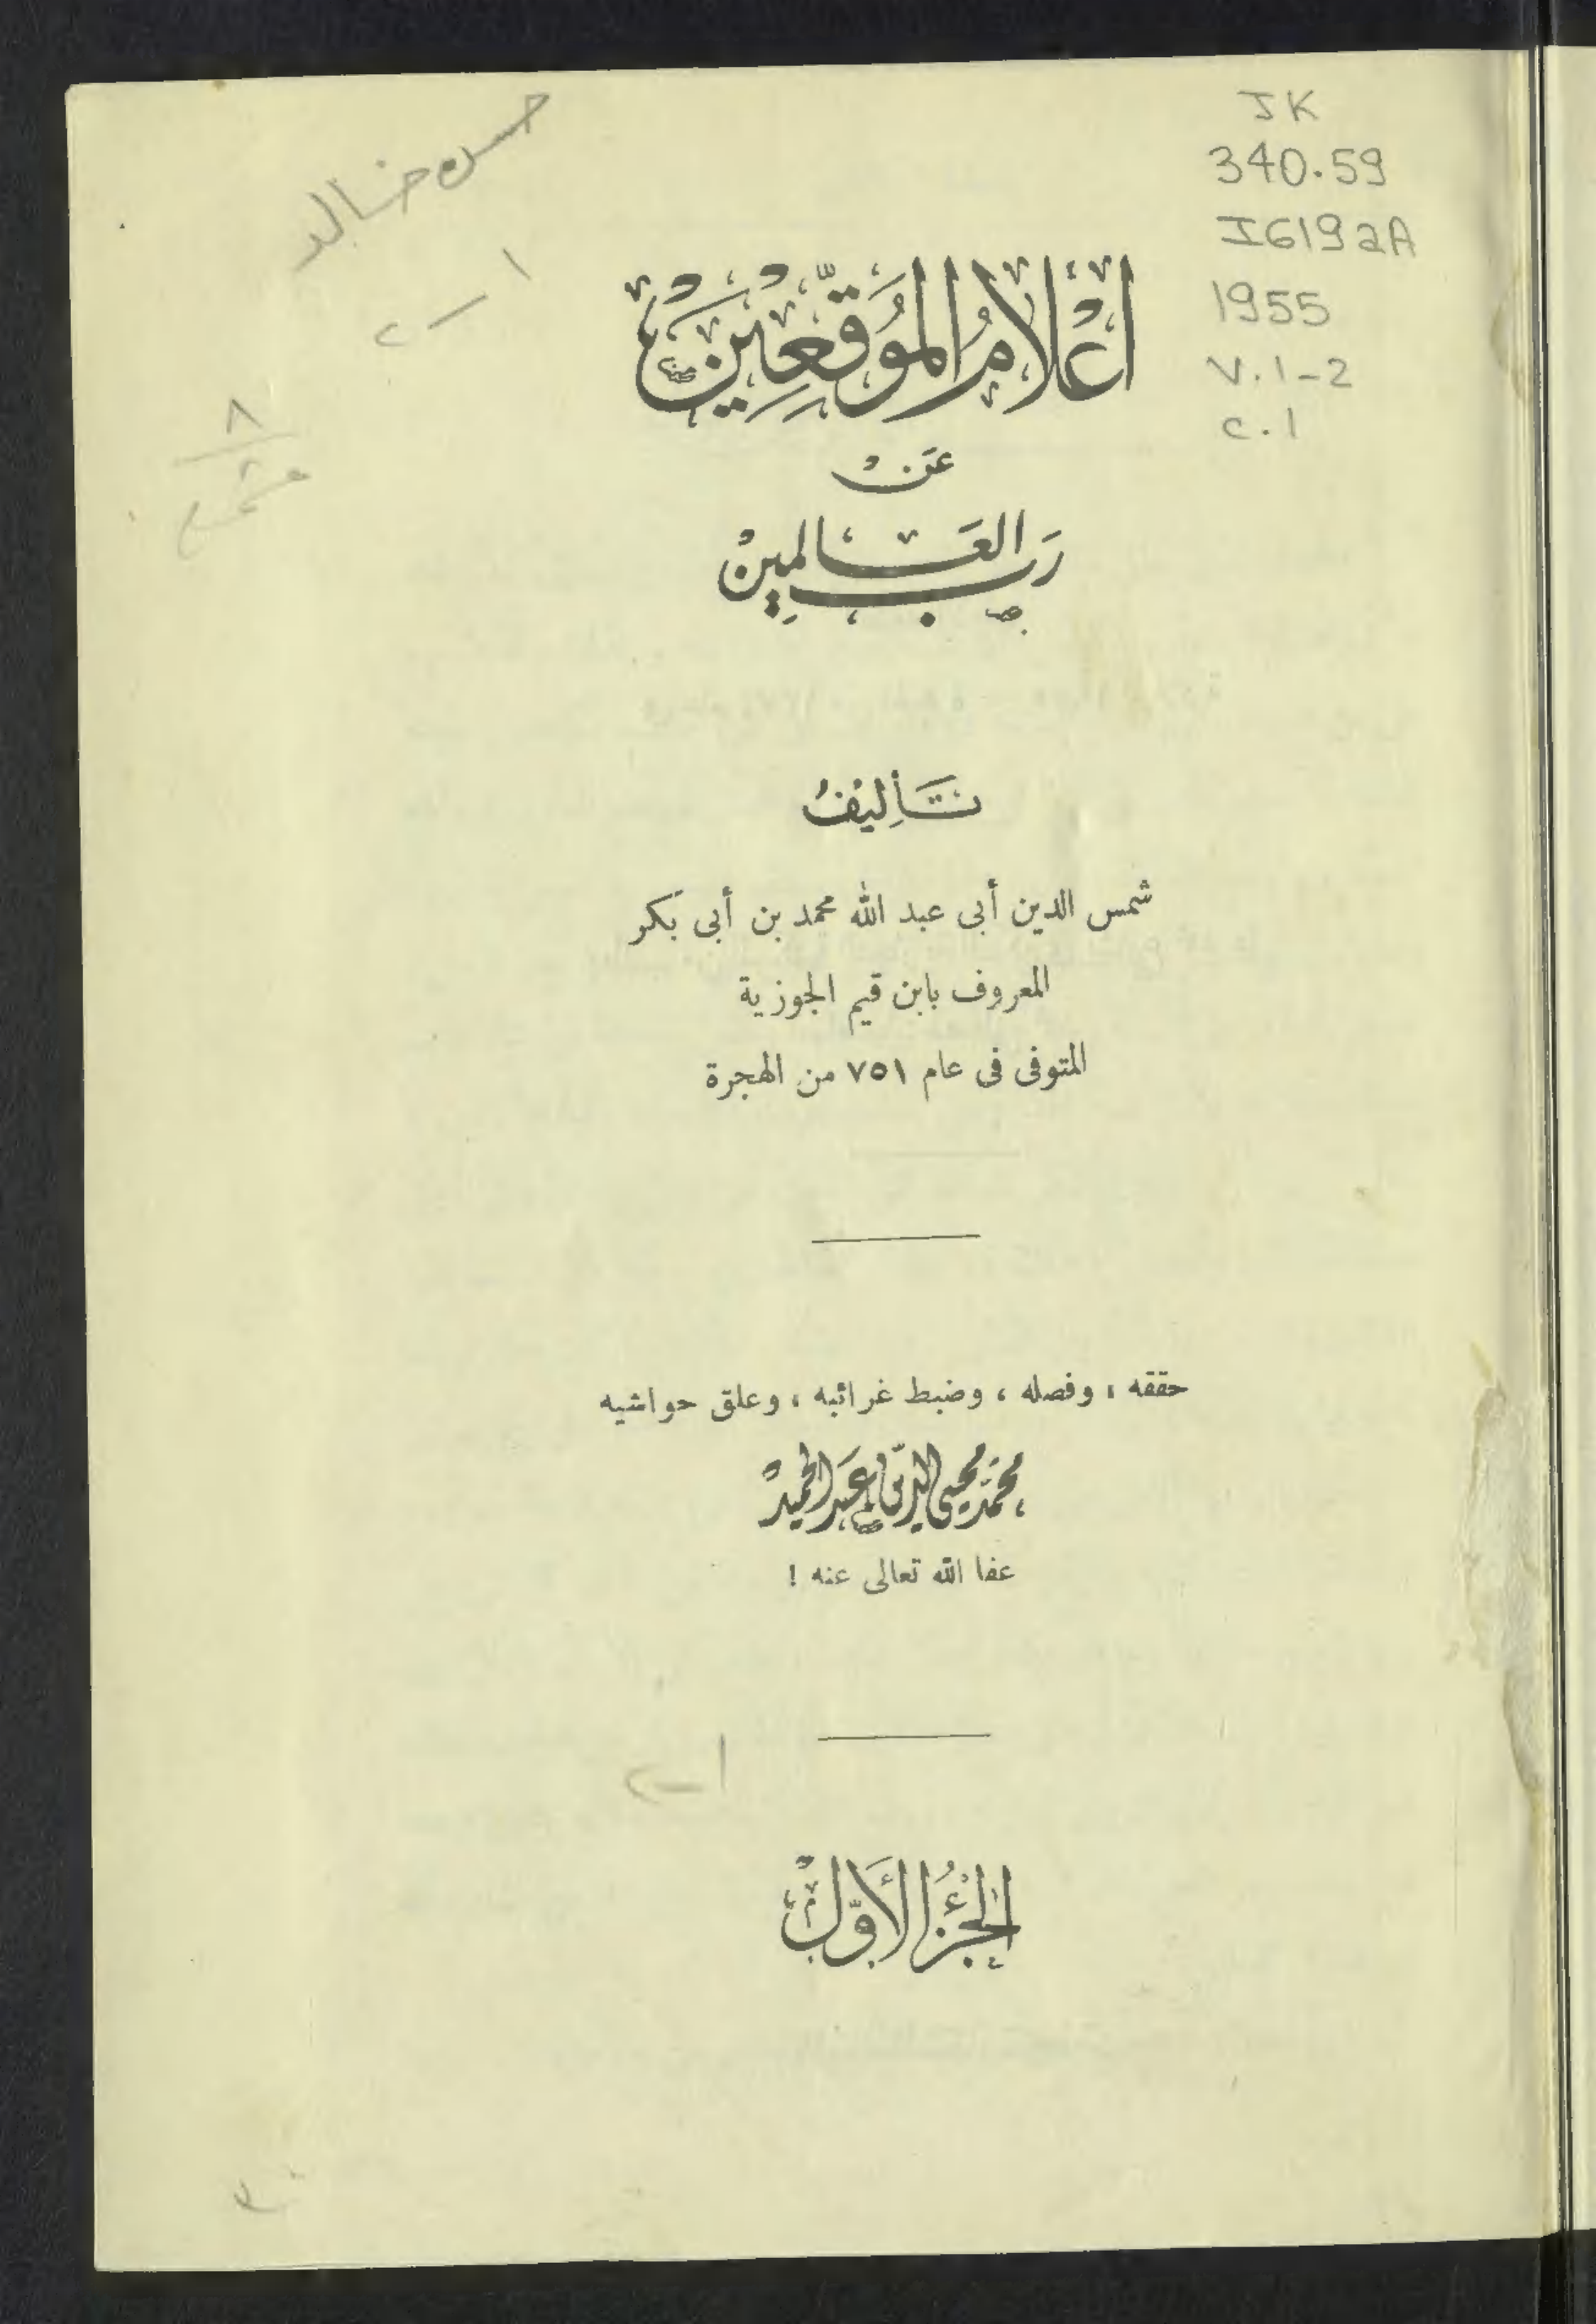 حسن خالد
١ – ٢
JK
340.59
I619aA
1955
v.1-2
c.1
٨
إعْلَامُ المُوَقِّعِيْنَ
عَنْ
رَبِّ العَالَمِيْنْ
تَأْلِيْفُ
شمس الدين أبى عبد الله محمد بن أبى بكر
المعروف بابن قيم الجوزية
المتوفى فى عام ٧٥١ من الهجرة
حققه ، وفصله ، وضبط غرائبه ، وعلق حواشيه
مُحَمَّد مُحيى الدِّين عَبد الحَميدْ
عفا الله تعالى عنه !
١–٢
الجُزْءُ الأَوَّلْ